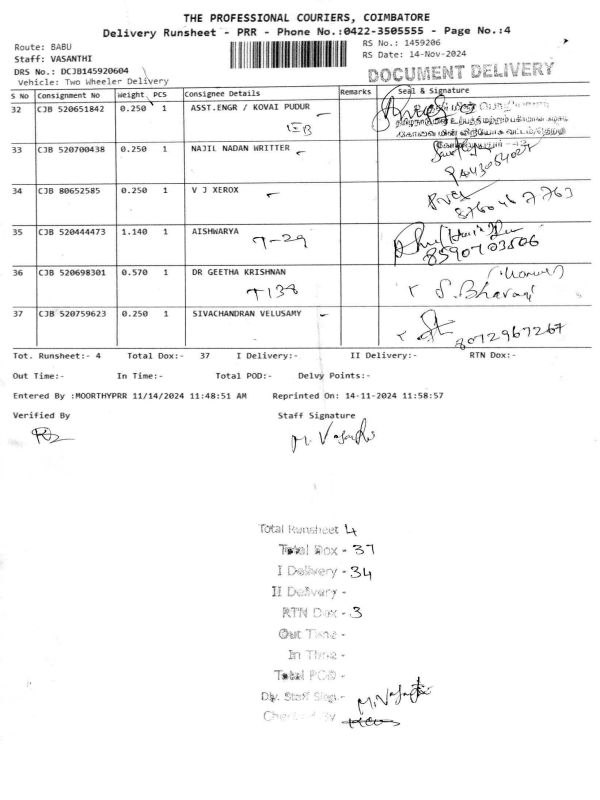 THE PROFESSIONAL COURIERS, COIMBATORE
Delivery Runsheet - PRR - Phone No.:0422-3505555 - Page No.:4
Route: BABU
RS No.: 1459206
Staff: VASANTHI
RS Date: 14-Nov-2024
DRS No.: DCJB145920604
DOCUMENT DELIVERY
Vehicle: Two Wheeler Delivery
S No Consignment No Weight PCS Consignee Details Remarks Seal & Signature
32 CJB 520651842 0.250 1 ASST.ENGR / KOVAI PUDUR
33 CJB 520700438 0.250 1 NAJIL NADAN WRITTER
34 CJB 80652585 0.250 1 V J XEROX
35 CJB 520444473 1.140 1 AISHWARYA
T-29
8590703506
36 CJB 520698301 0.570 1 DR GEETHA KRISHNAN
T 138
37 CJB 520759623 0.250 1 SIVACHANDRAN VELUSAMY
8072967267
Tot. Runsheet:- 4 Total Dox:- 37 I Delivery:- II Delivery:- RTN Dox:-
Out Time:- In Time:- Total POD:- Delvy Points:-
Entered By :MOORTHYPRR 11/14/2024 11:48:51 AM Reprinted On: 14-11-2024 11:58:57
Verified By Staff Signature
Total Runsheet 4
Total Dox - 37
I Delivery - 34
II Delivery -
RTN Dox - 3
Out Time -
In Time -
Total POD -
Dly. Staff Sign -
Checked By